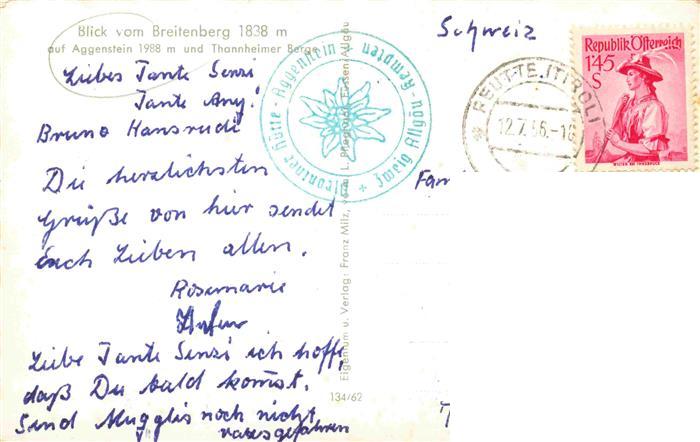 Blick vom Breitenberg 1838 m
auf Aggenstein 1988 m und Thannheimer Berge
Liebes Tante Senzi
Tante Any!
Bruno Hansruedi
Die herzlichsten
Grüße von hier sendet
Euch Lieben allen.
Rosemarie
Liebe Tante Senzi ich hoffe,
daß Du bald kommst.
Sind Mugglis noch nicht
Kemptener Hütte - Aggenstein
Zweig Allgäu Kempten
Eigentum u. Verlag: Franz Milz, vorm. L. Füssen/Allgäu
134/62
Schweiz
REUTTE (TIROL)
12.7.56.-16
Republik Österreich
1'45
S
Fam